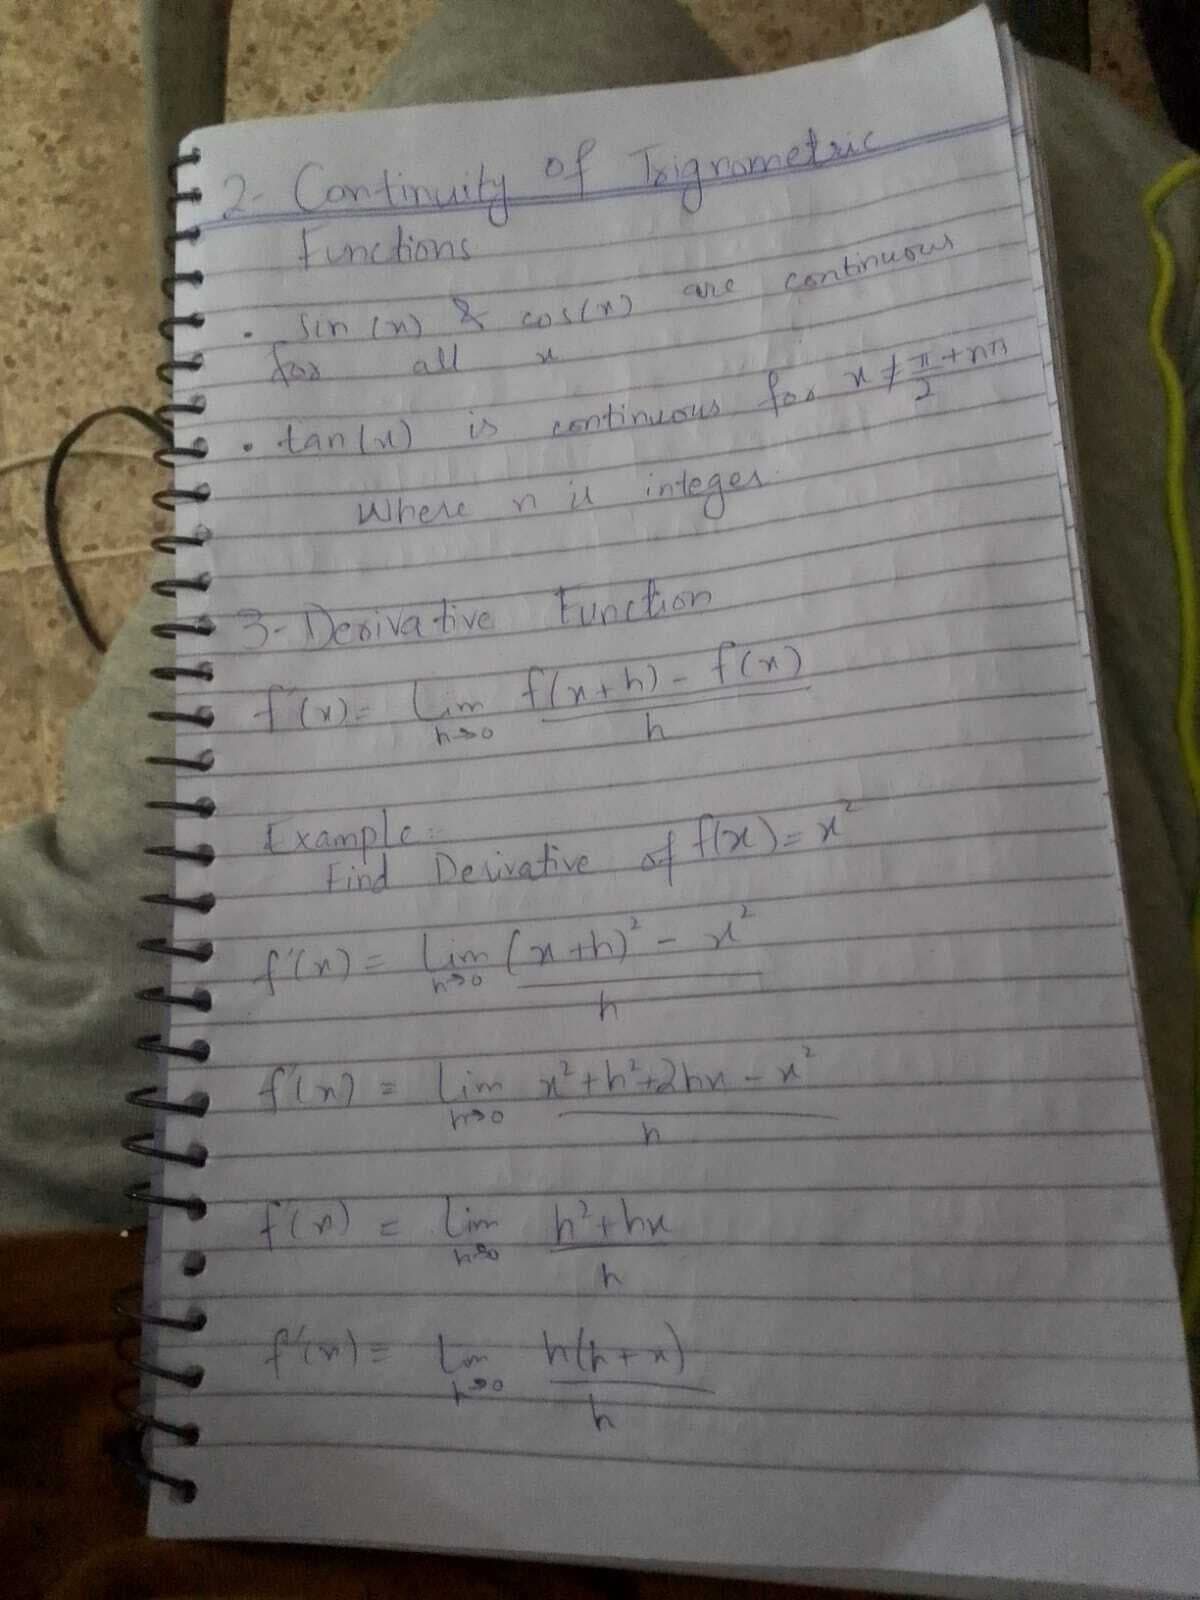 2- Continuity of Trignometric
Functions
• sin(x) & cos(x) are continuous
for all x
• tan(x) is continuous for x ≠ π/2 + nπ
Where n is integer.
3- Derivative Function
f'(x) = Lim h→0 f(x+h) - f(x) / h
Example:
Find Derivative of f(x) = x²
f'(x) = Lim h→0 (x+h)² - x² / h
f'(x) = Lim h→0 x²+h²+2hx - x² / h
f'(x) = Lim h→0 h²+hx / h
f'(x) = Lim h→0 h(h+x) / h